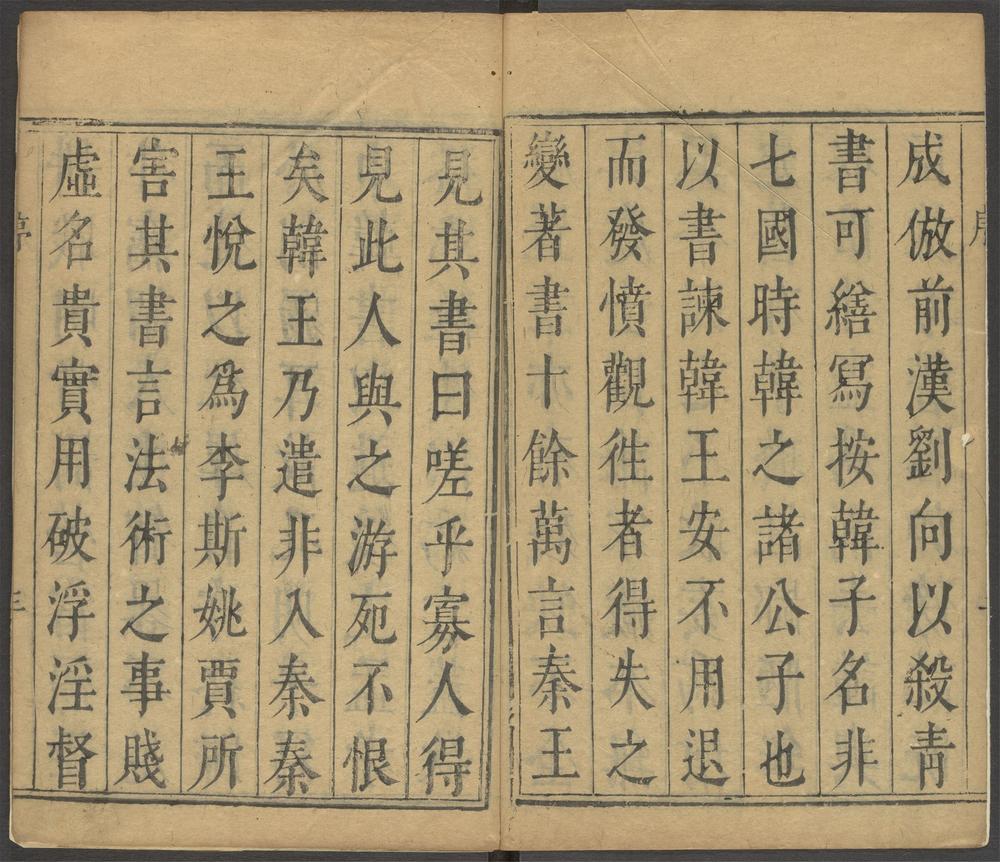 成倣前漢劉向以殺青
書可繕寫按韓子名非
七國時韓之諸公子也
以書諫韓王安不用退
而發憤觀徃者得失之
變著書十餘萬言秦王
見其書曰嗟乎寡人得
見此人與之游死不恨
矣韓王乃遣非入秦秦
王悅之為李斯姚賈所
害其書言法術之事賤
虛名貴實用破浮淫督